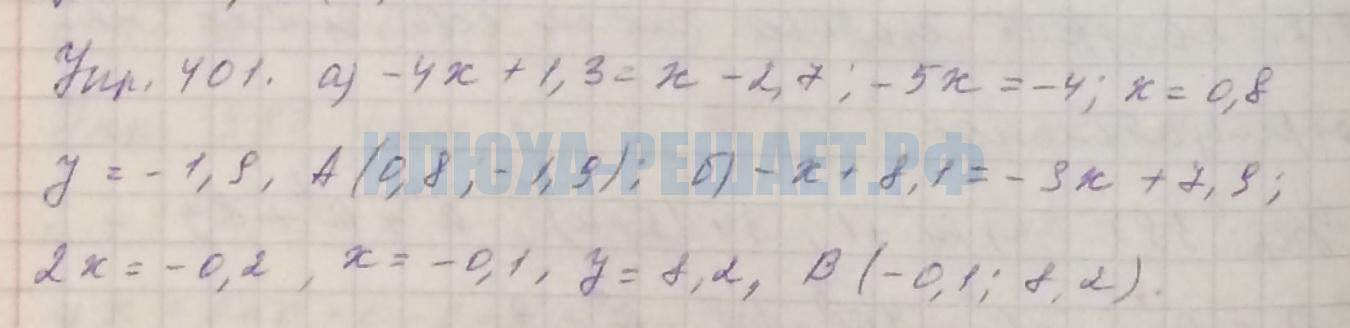 Упр. 401. а) -4x + 1,3 = x - 2,7; -5x = -4; x = 0,8
y = -1,9, A (0,8; -1,9); б) -x + 8,1 = -3x + 7,9;
ИЛЮХА-РЕШАЕТ.РФ
2x = -0,2, x = -0,1, y = 8,2, B (-0,1; 8,2).